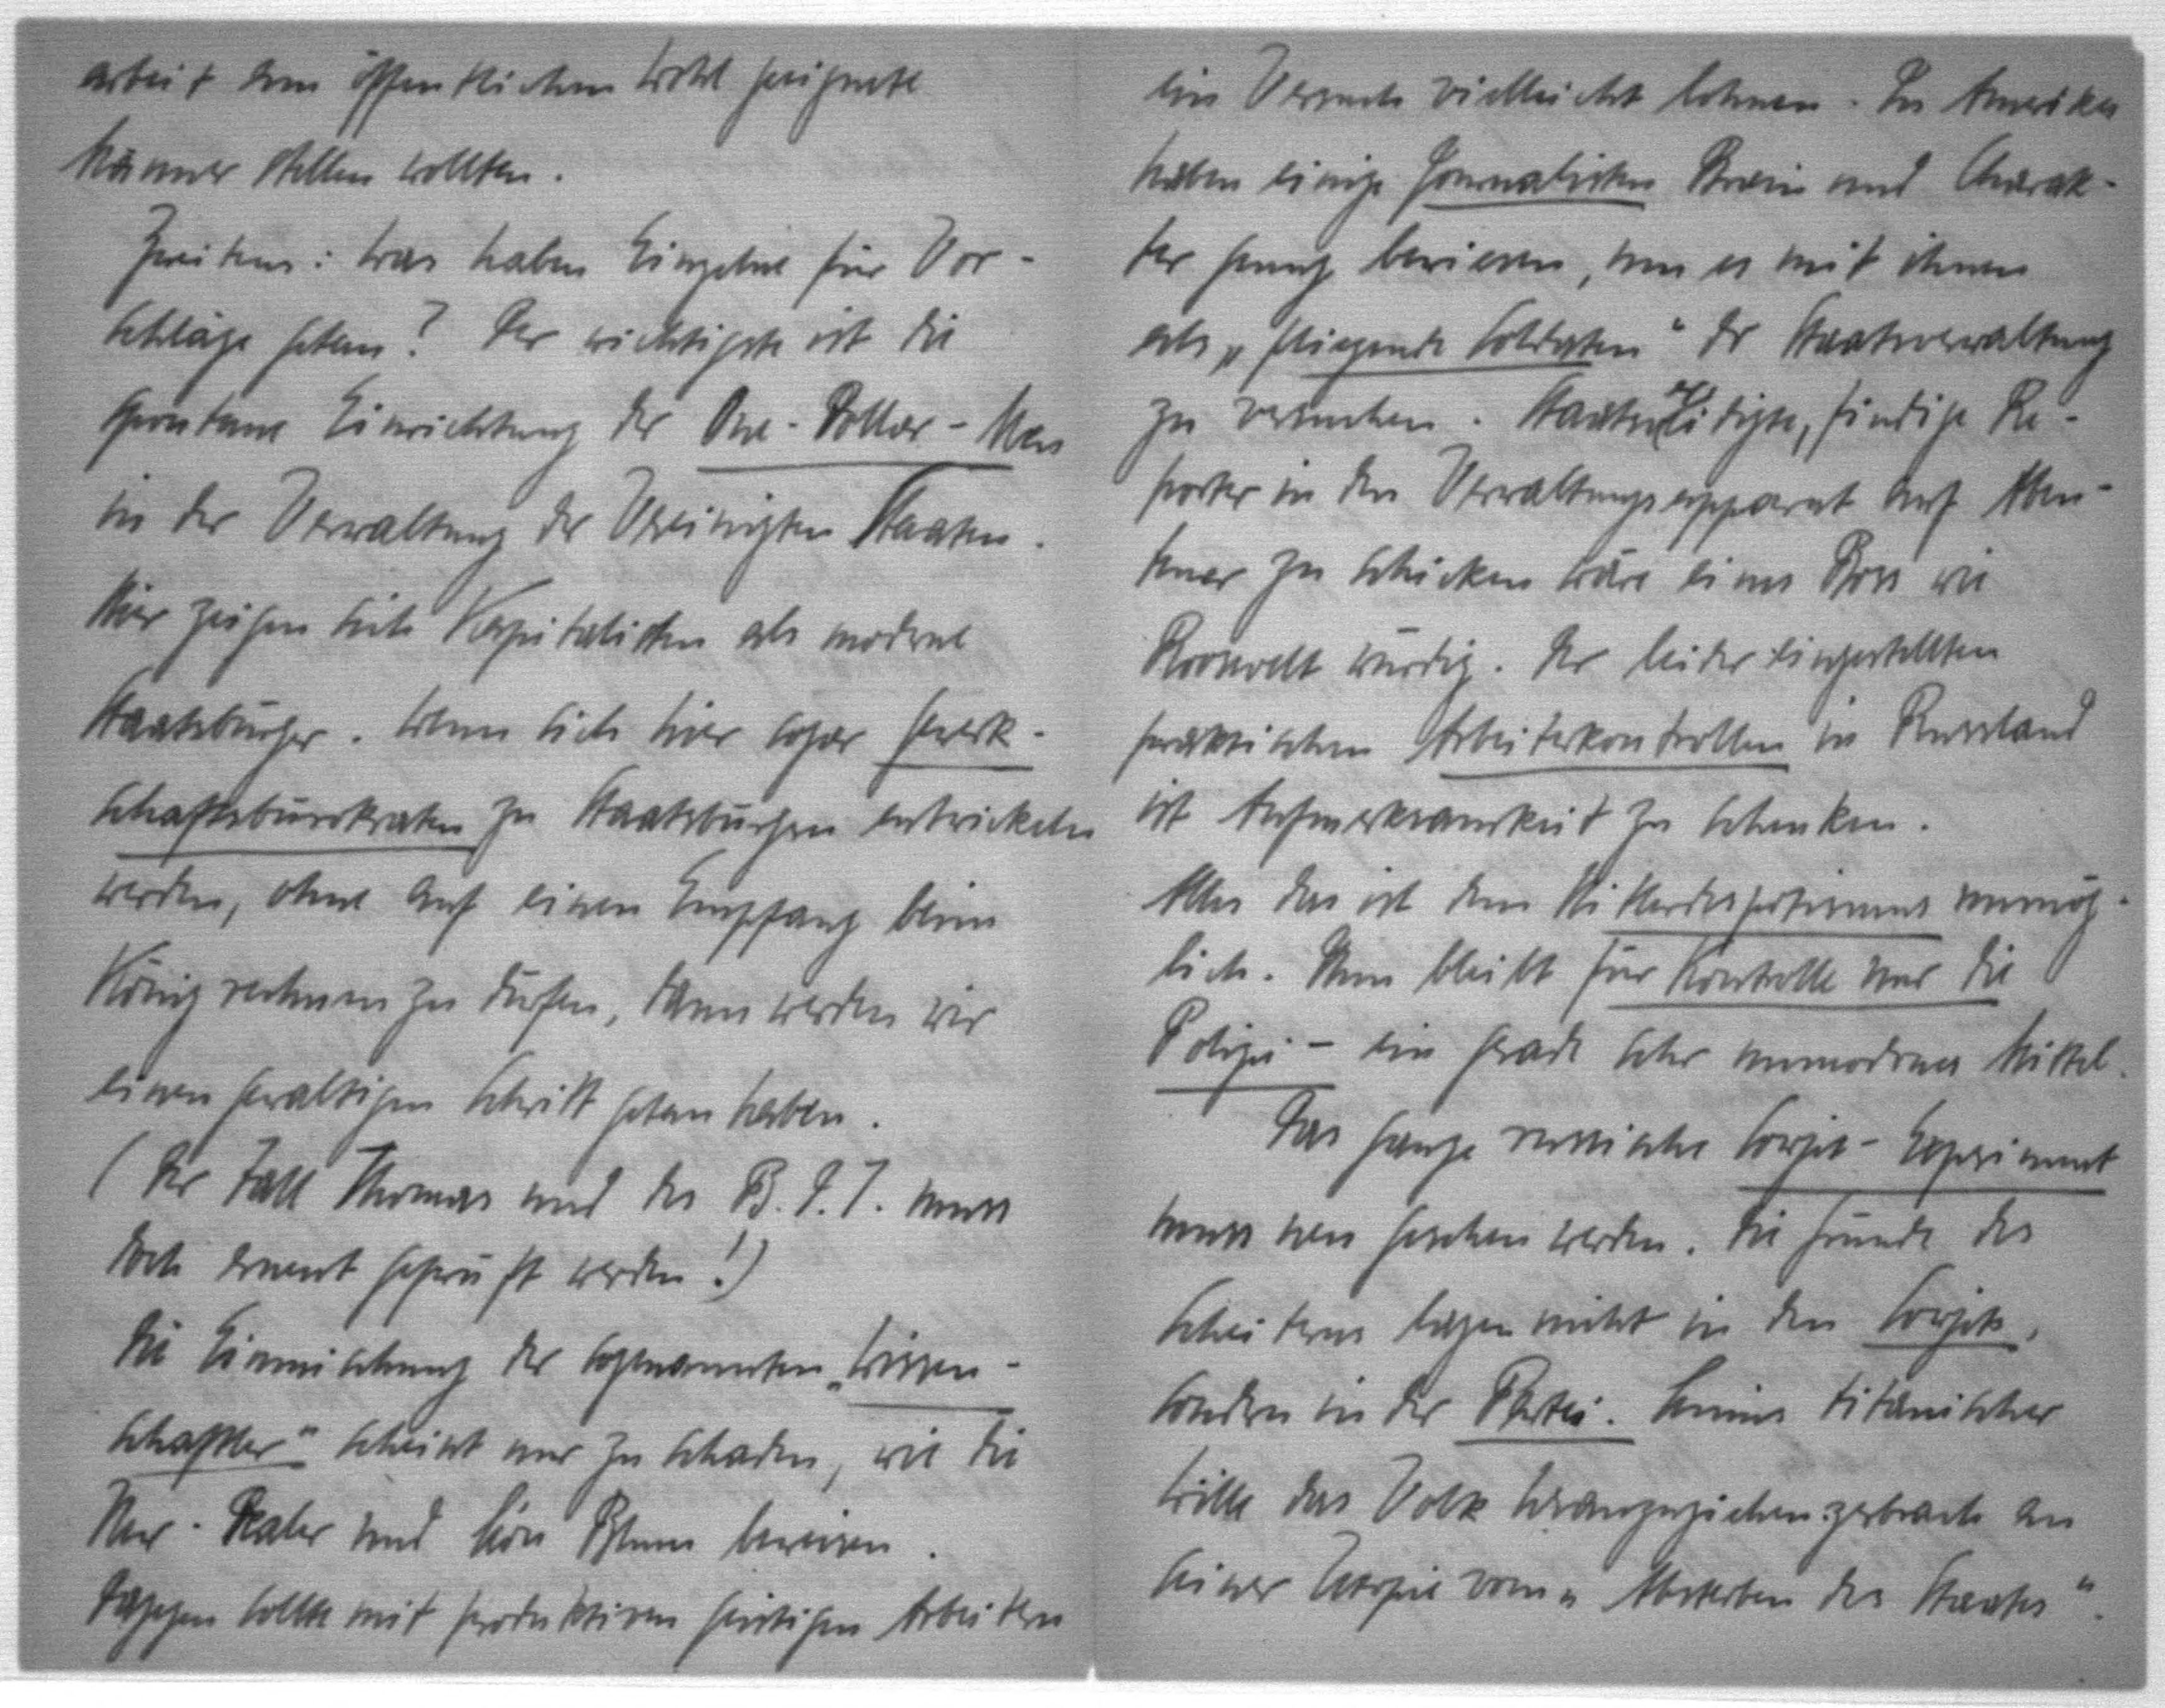 arbeit dem öffentlichen Wohl geeignete
Männer stellen wollten.
Zweitens: Was haben Einzelne für Vor-
schläge getan? Der wichtigste ist die
spontane Einrichtung der One-Dollar-Men
in der Verwaltung der Vereinigten Staaten.
Hier zeigen sich Kapitalisten als moderne
Staatsbürger. Wenn sich hier sogar Gewerk-
schaftsbürokraten zu Staatsbürgern entwickeln
werden, ohne auf einen Empfang beim
König rechnen zu dürfen, dann werden wir
einen gewaltigen Schritt getan haben.
(Der Fall Thomas und des B.I.T. muss
doch erneut geprüft werden!)
Die Einmischung der sogenannten „Wissen-
schaftler" scheint nur zu schaden, wie die
New-Dealer und Léon Blum beweisen.
Dagegen sollte mit produktiven geistigen Arbeitern
ein Versuch vielleicht lohnen. In Amerika
haben einige Journalisten Brain und Charak-
ter genug bewiesen, um es mit ihnen
als „fliegende Soldaten" der Staatsverwaltung
zu versuchen. Staatsvereidigte, findige Re-
porter in den Verwaltungsapparat auf Aben-
teuer zu schicken wäre eines Boss wie
Roosevelt würdig. Der leider eingestellten
praktischen Arbeiterkontrollen in Russland
ist Aufmerksamkeit zu schenken.
Alles das ist dem Hitlerdespotismus unmög-
lich. Ihm bleibt für Kontrolle nur die
Polizei – ein gerade sehr unmodernes Mittel.
Das ganze russische Sowjet-Experiment
muss neu gesehen werden. Die Gründe des
Scheiterns lagen nicht in den Sowjets,
sondern in der Partei. Lenins titanischer
Wille das Volk heranzuziehen zerbrach an
seiner Utopie vom „Absterben des Staates".